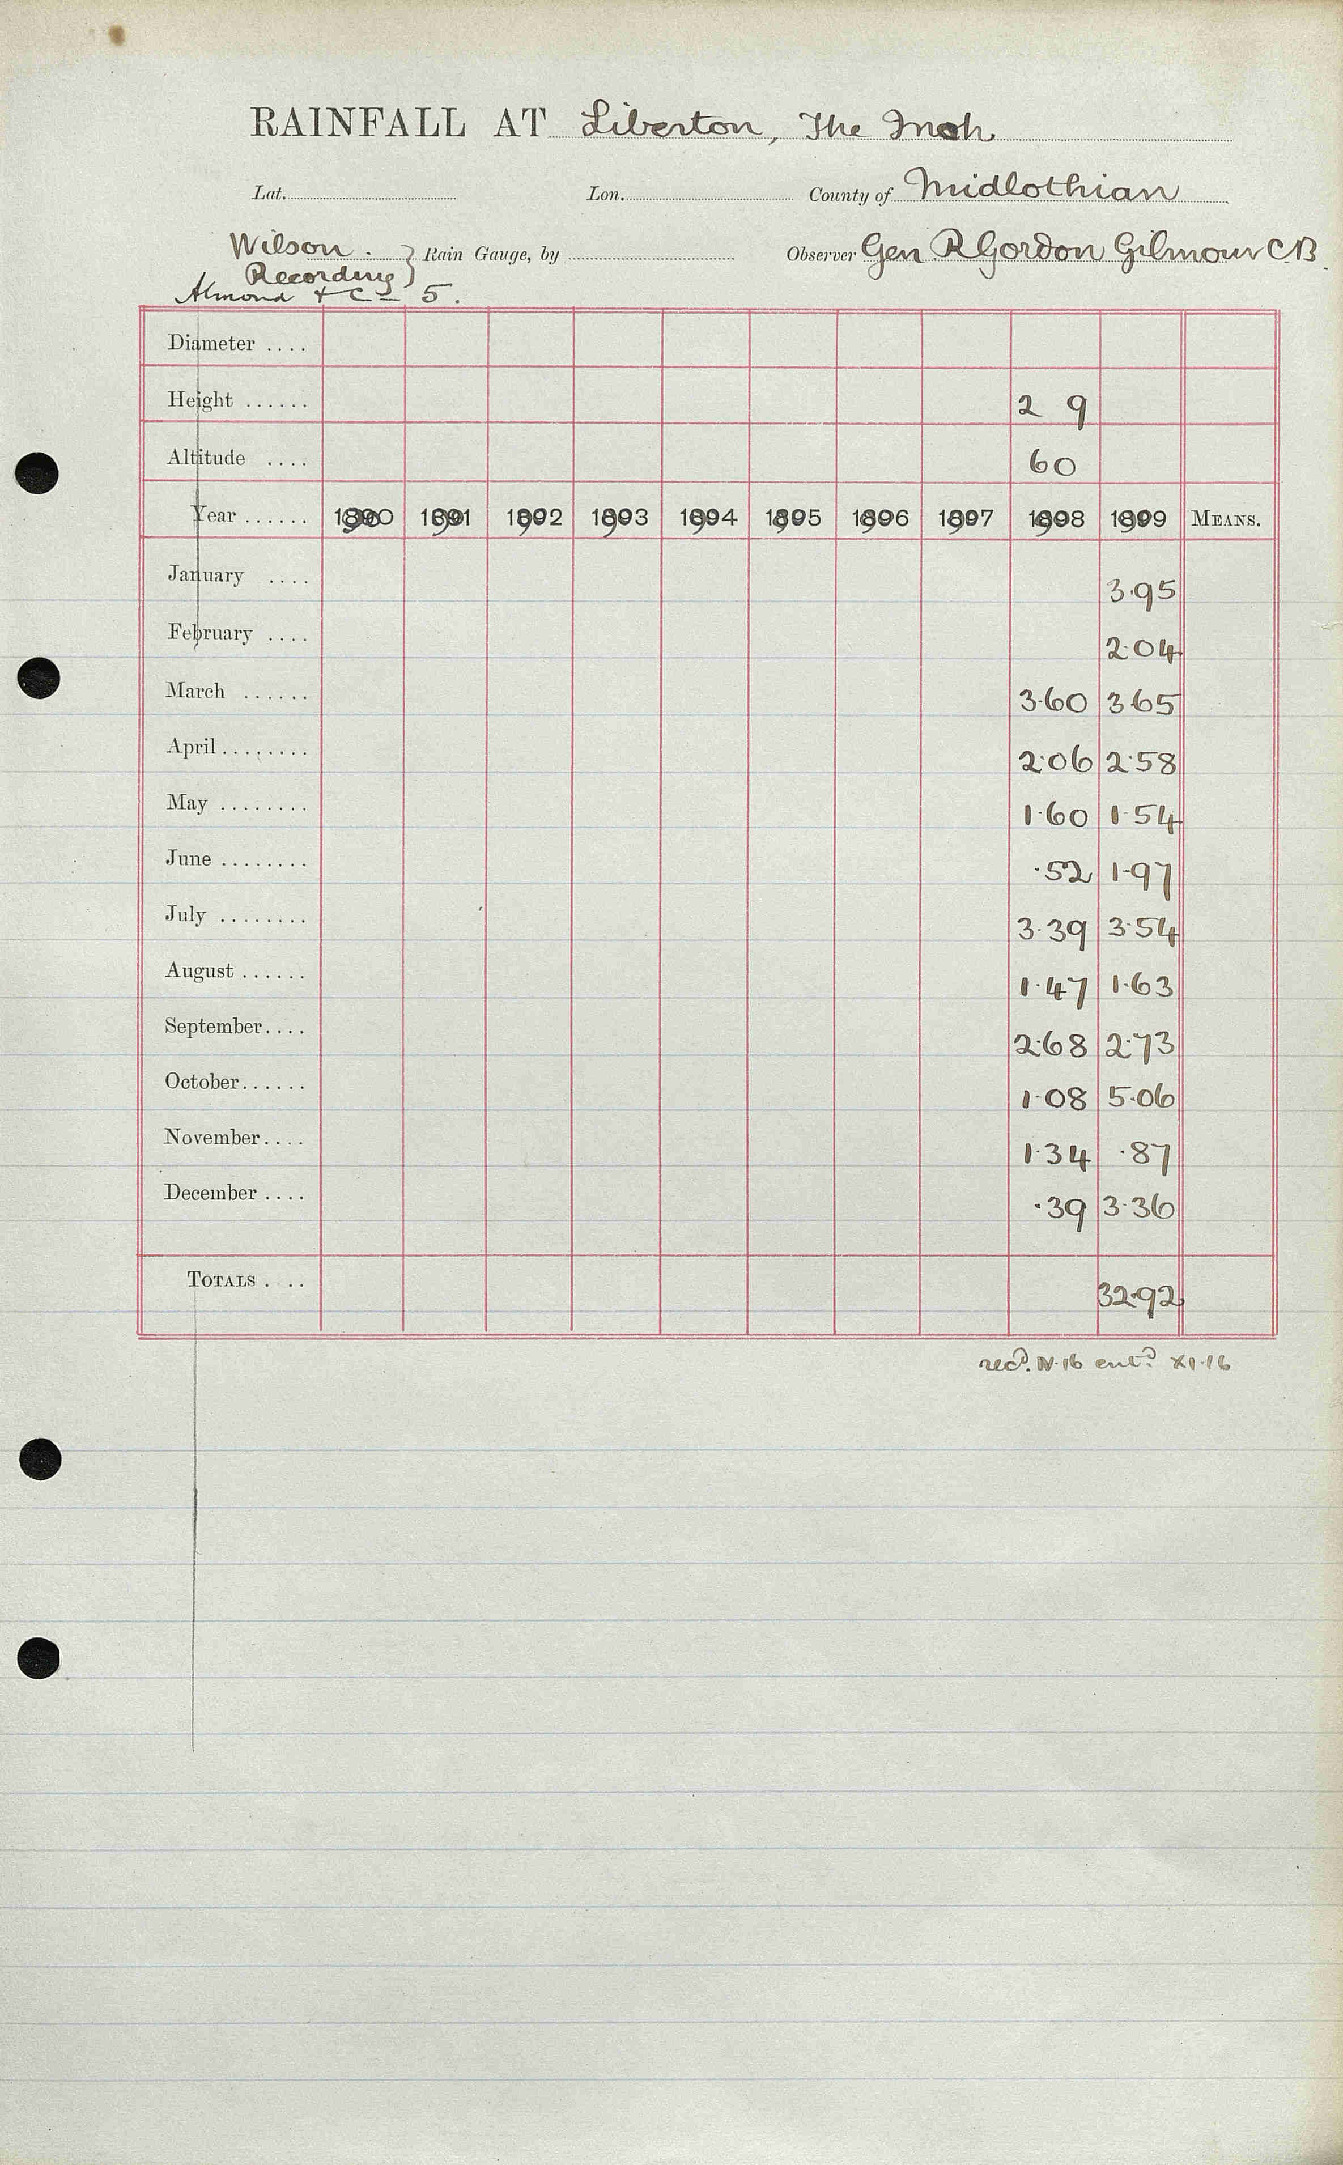 RAINFALL AT Liberton, The Inch
Lat. Lon. County of Midlothian
Wilson. Recording } Rain Gauge, by Observer Gen R Gordon Gilmour CB.
Almond & Co 5.
Diameter ....
Height ...... 2 9
Altitude .... 60
Year ...... 1900 1901 1902 1903 1904 1905 1906 1907 1908 1909 MEANS.
January .... 3.95
February .... 2.04
March ...... 3.60 3.65
April ........ 2.06 2.58
May ........ 1.60 1.54
June ........ .52 1.97
July ........ 3.39 3.54
August ...... 1.47 1.63
September.... 2.68 2.73
October...... 1.08 5.06
November.... 1.34 .87
December .... .39 3.36
TOTALS . .. 32.92
recd. IV.16 entd XI.16